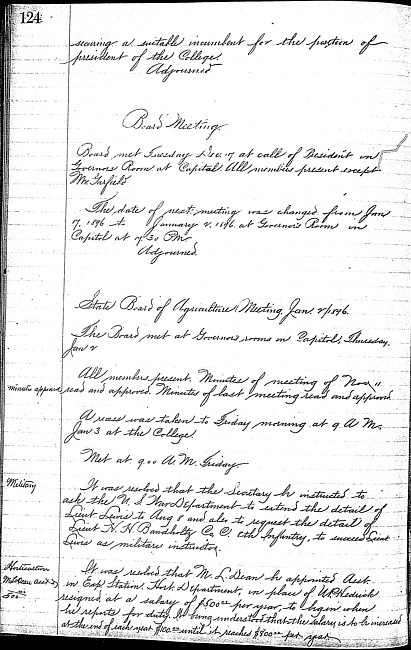 124
securing a suitable incumbent for the position of
president of the College.
Adjourned
Board Meeting.
Board met Tuesday Dec. 17 at call of President in
Governors Room at Capitol. All members present except
Mr. Garfield
The date of next meeting was changed from Jan
7, 1896 to January 2, 1896 at Governor's Room in
Capitol at 7.30 P.M.
Adjourned.
State Board of Agriculture Meeting, Jan. 2/1896.
The Board met at Governors rooms in Capitol, Thursday,
Jan 2
All members present. Minutes of meeting of Nov. 11
minutes approved
read and approved. Minutes of last meeting read and approved
A recess was taken to Friday morning at 9 A.M.
Jan 3 at the College.
Met at 9.00 A.M. Friday
Military
It was resolved that the Secretary be instructed to
ask the U. S. War Department to extend the detail of
Lieut Lewis to Aug 8 and also to request the detail of
Lieut H. H. Bandholtz Co. C. 6th Infantry, to succeed Lieut
Lewis as military instructor.
Horticulture
It was resolved that M. L. Dean be appointed Asst.
M. L. Dean asst @
in Exp Station, Hort. Department, in place of U. P. Hedrick
500.00
resigned at a salary of $500.00 per year, to begin when
he reports for duty. It being understood that the salary is to be increased
at the end of each year $100.00 until it reaches $800.00 per year